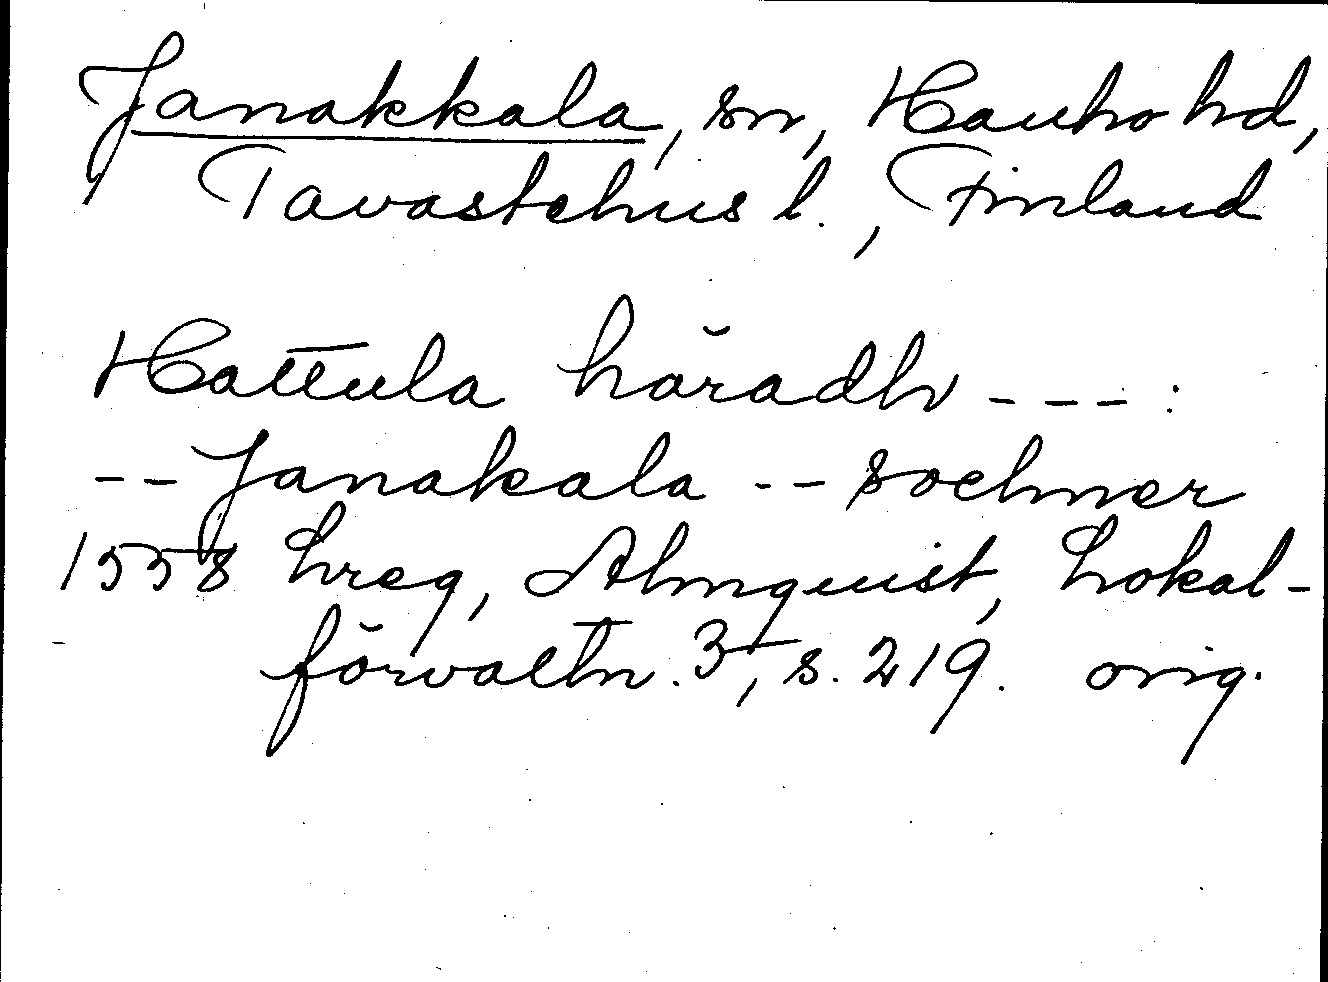 Janakkala, sn, Hauho hd,
Tavastehus l., Finland
Hattula häradh --- :
-- Janakala -- sochner
1558 hreg, Almquist, Lokal-
förvaltn. 3, s. 219. orig.